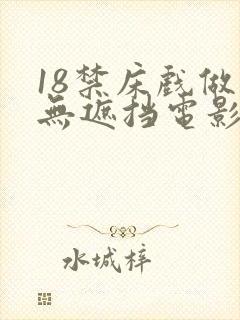 18禁床戲做
無遮挡電影
水城梓